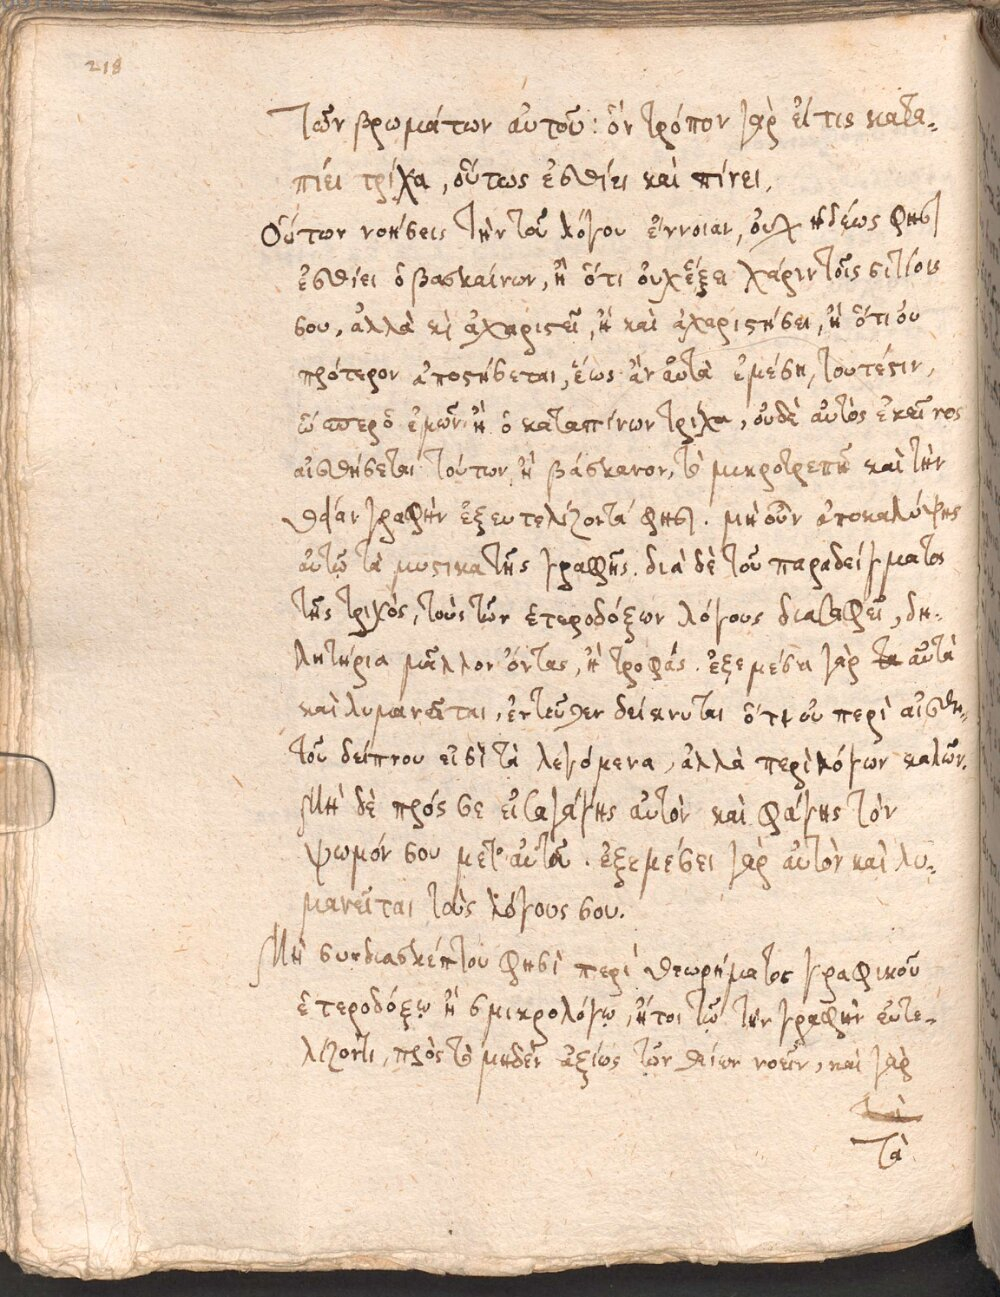 218
τῶν βρωμάτων αὐτοῦ: ὃν τρόπον γὰρ εἴ τις κατα-
πίει τρίχα, οὕτως ἐσθίει καὶ πίνει,
Οὕτων νοήσεις τὴν τοῦ λόγου ἔννοιαν, οὐχ ἡδέως φησὶ
ἐσθίει ὁ βασκαίνων, ἢ ὅτι οὐχ ἕξει χάριν τοῖς σιτίοις
σου, ἀλλὰ καὶ ἀχαριστεῖ, ἢ καὶ ἀχαριστήσει, ἢ ὅτι οὐ
πρότερον ἀποστήσεται, ἕως ἂν αὐτὰ ἐμέσῃ, τουτέστιν,
ὥσπερ ὁ ἐμῶν ἢ ὁ καταπίνων τρίχα, οὐδὲ αὐτὸς ἐκεῖνος
αἰσθήσεται τούτων, ἢ βάσκανον, τὸ μικροτρεπῆ καὶ τὴν
θείαν γραφὴν ἐξευτελίζοντα φησί. μὴ οὖν ἀποκαλύψῃς
αὐτῷ τὰ μυστικὰ τῆς γραφῆς. διὰ δὲ τοῦ παραδείγματος
τῆς τριχός, τοὺς τῶν ἑτεροδόξων λόγους διασαφεῖ, δη-
λητήρια μᾶλλον ὄντας, ἢ τροφάς. ἐξεμέσει γὰρ αὐτὰ
καὶ λυμανεῖται, ἐντεῦθεν δείκνυται ὅτι οὐ περὶ αἰσθη-
τοῦ δείπνου εἰσὶ τὰ λεγόμενα, ἀλλὰ περὶ λόγων καλῶν.
Μὴ δὲ πρός σε εἰσαγάγῃς αὐτὸν καὶ φάγῃς τὸν
ψωμόν σου μετ' αὐτοῦ. ἐξεμέσει γὰρ αὐτὸν καὶ λυ-
μανεῖται τοὺς λόγους σου.
Μὴ συνδιασκέπτου φησὶ περὶ θεωρήματος γραφικοῦ
ἑτεροδόξῳ ἢ σμικρολόγῳ, ἤτοι τῷ τὴν γραφὴν εὐτε-
λίζοντι, πρὸς τὸ μηδὲν ἀξίως τῶν θείων νοεῖν, καὶ γὰρ
τὰ